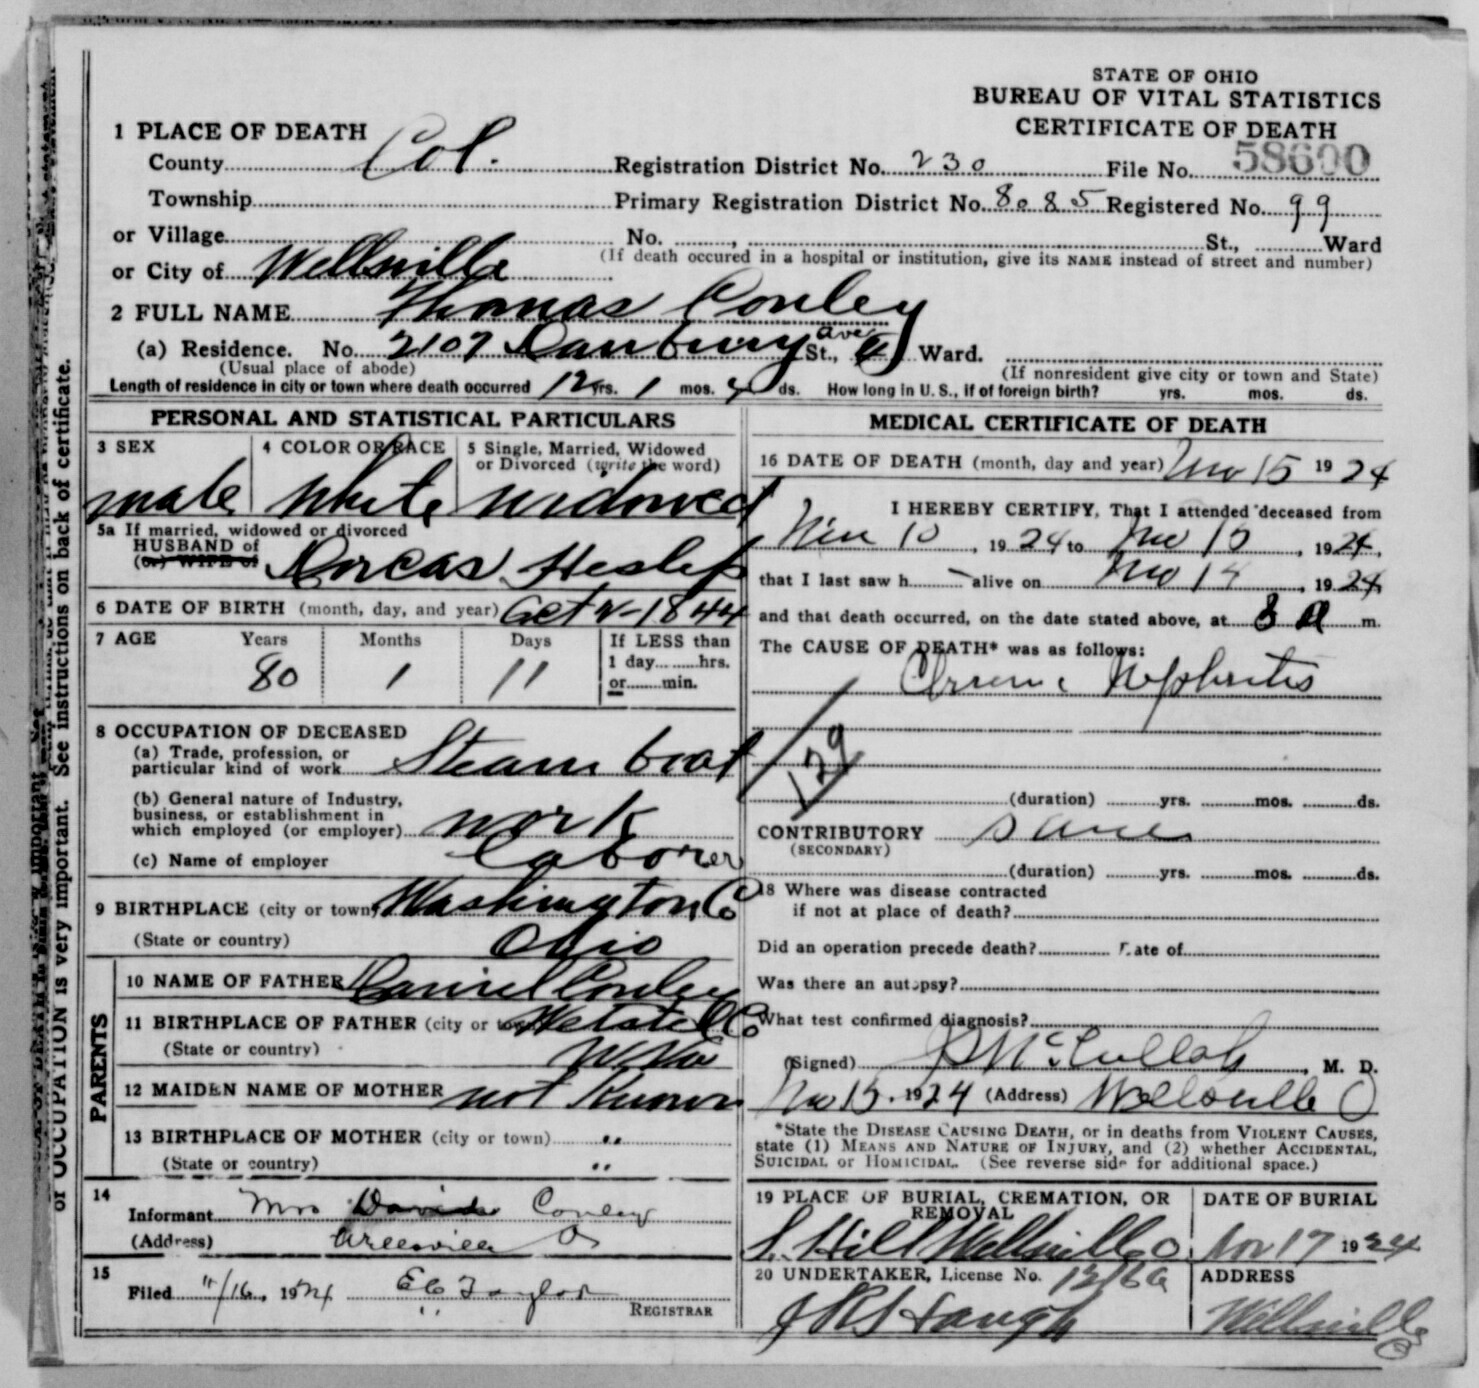 STATE OF OHIO
BUREAU OF VITAL STATISTICS
CERTIFICATE OF DEATH
1 PLACE OF DEATH
County Col. Registration District No. 230 File No. 58600
Township Primary Registration District No. 8085 Registered No. 99
or Village No. , St., Ward
or City of Wellsville (If death occured in a hospital or institution, give its NAME instead of street and number)
2 FULL NAME Thomas Conley
(a) Residence. No. 2107 Danbury ave St., Ward.
(Usual place of abode) (If nonresident give city or town and State)
Length of residence in city or town where death occurred 12 yrs. 1 mos. ds. How long in U. S., if of foreign birth? yrs. mos. ds.
PERSONAL AND STATISTICAL PARTICULARS
3 SEX 4 COLOR OR RACE 5 Single, Married, Widowed
or Divorced (write the word)
male white widowed
5a If married, widowed or divorced
HUSBAND of
(or) WIFE of Dorcas Heslep
6 DATE OF BIRTH (month, day, and year) Oct 4-1844
7 AGE Years Months Days If LESS than
1 day hrs.
80 1 11 or min.
8 OCCUPATION OF DECEASED
(a) Trade, profession, or
particular kind of work Steam boat
(b) General nature of Industry,
business, or establishment in
which employed (or employer) work
(c) Name of employer Laborer
9 BIRTHPLACE (city or town) Washington Co
(State or country) Ohio
PARENTS
10 NAME OF FATHER Daniel Conley
11 BIRTHPLACE OF FATHER (city or town) Wetstell Co
(State or country) W Va
12 MAIDEN NAME OF MOTHER not Known
13 BIRTHPLACE OF MOTHER (city or town) "
(State or country) "
14
Informant Mrs David Conley
(Address) Wellsville O
15
Filed 11/16, 1924 EC Taylor
REGISTRAR
MEDICAL CERTIFICATE OF DEATH
16 DATE OF DEATH (month, day and year) Nov 15 1924
I HEREBY CERTIFY, That I attended deceased from
Nov 10, 1924 to Nov 15, 1924,
that I last saw h alive on Nov 14, 1924
and that death occurred, on the date stated above, at 8 a m.
The CAUSE OF DEATH* was as follows:
Chronic Nephritis
129
(duration) yrs. mos. ds.
CONTRIBUTORY same
(SECONDARY)
(duration) yrs. mos. ds.
18 Where was disease contracted
if not at place of death?
Did an operation precede death? Date of
Was there an autopsy?
What test confirmed diagnosis?
(Signed) McCulloh, M. D.
Nov 15, 1924 (Address) Wellsville O
*State the DISEASE CAUSING DEATH, or in deaths from VIOLENT CAUSES,
state (1) MEANS AND NATURE OF INJURY, and (2) whether ACCIDENTAL,
SUICIDAL or HOMICIDAL. (See reverse side for additional space.)
19 PLACE OF BURIAL, CREMATION, OR
REMOVAL
DATE OF BURIAL
S. Hill Wellsville O Nov 17 1924
20 UNDERTAKER, License No. ADDRESS
Haugh Wellsville O
of OCCUPATION is very important. See instructions on back of certificate.